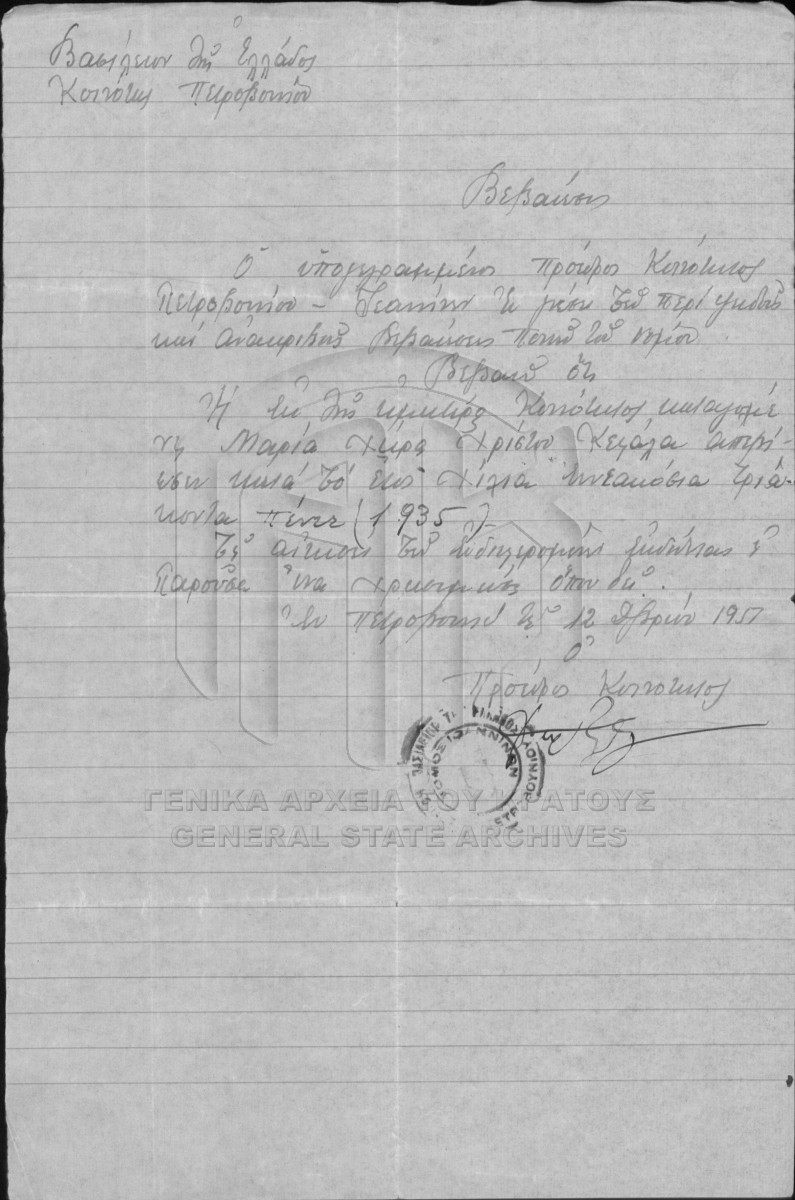 Βασίλειον τῆς Ἑλλάδος
Κοινότης Πετροβουνίου
Βεβαίωσις
Ὁ ὑπογεγραμμένος Πρόεδρος Κοινότητος
Πετροβουνίου - Ἰωαννίνων ἐν γνώσει τῶν περὶ ψευδοῦς
καὶ ἀνακριβοῦς βεβαιώσεως ποινῶν τοῦ νόμου
Βεβαιῶ ὅτι
Ἡ ἐκ τῆς ἡμετέρας Κοινότητος καταγομέ
νη Μαρία χήρα Χρίστου Κεφάλα ἀπεβί-
ωσεν κατά τό ἔτος χίλια ἐννεακόσια τριά-
κοντα πέντε (1935).
Τῇ αἰτήσει τῶν ἐνδιαφερομένων ἐκδίδεται ἡ
παροῦσα ἵνα χρησιμεύσῃ ὅπου δεῖ.
Ἐν Πετροβουνίῳ τῇ 12 1957
Ὁ
Πρόεδρος Κοινότητος
ΝΟΜΟΣ ΙΩΑΝΝΙΝΩΝ
ΓΕΝΙΚΑ ΑΡΧΕΙΑ ΤΟΥ ΚΡΑΤΟΥΣ
GENERAL STATE ARCHIVES